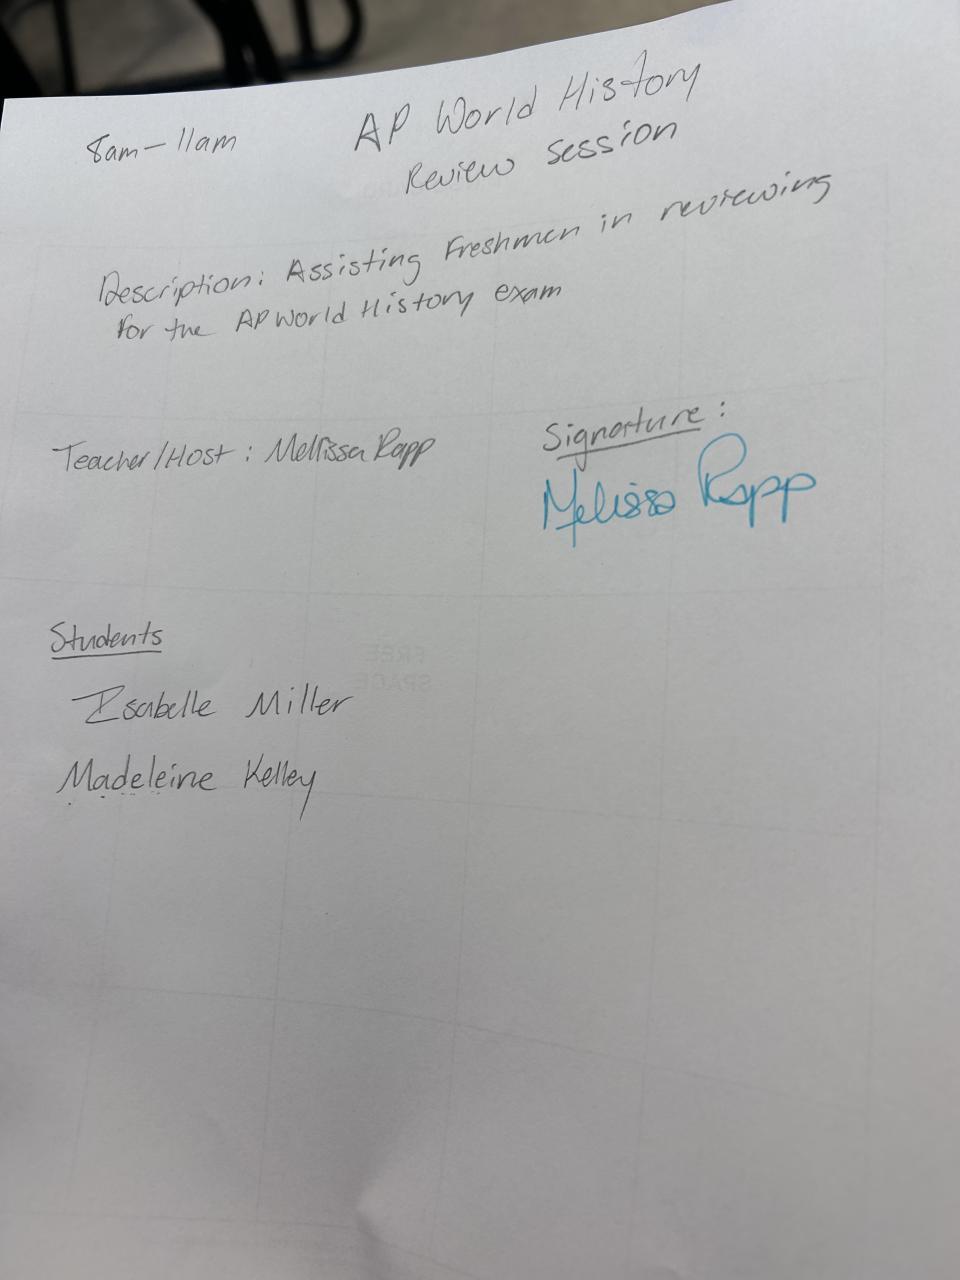 8am – 11am
AP World History
Review session
Description: Assisting Freshmen in reviewing
for the AP World History exam
Teacher/Host: Mellissa Rapp
Signature:
Melissa Rapp
Students
FREE
SPACE
Isabelle Miller
Madeleine Kelley